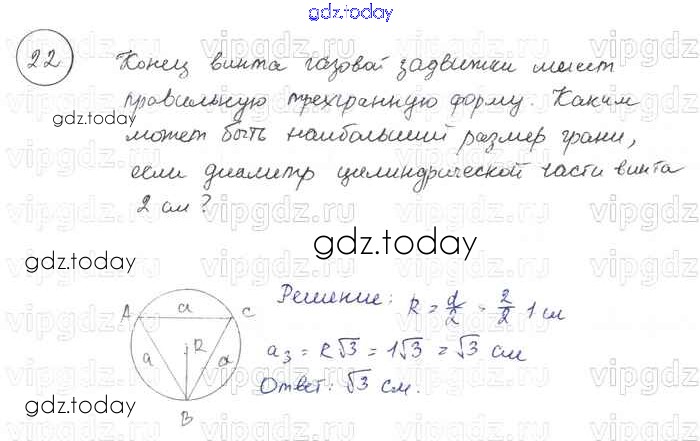 gdz.today
22
Конец винта газовой задвижки имеет
правильную трехгранную форму. Каким
может быть наибольший размер грани,
если диаметр цилиндрической части винта
2 см?
gdz.today
gdz.today
gdz.today
Решение: R = d/2 = 2/2 1 см
A a C
a R a
a₃ = R√3 = 1√3 = √3 см
Ответ: √3 см.
B
gdz.today
vipgdz.ru